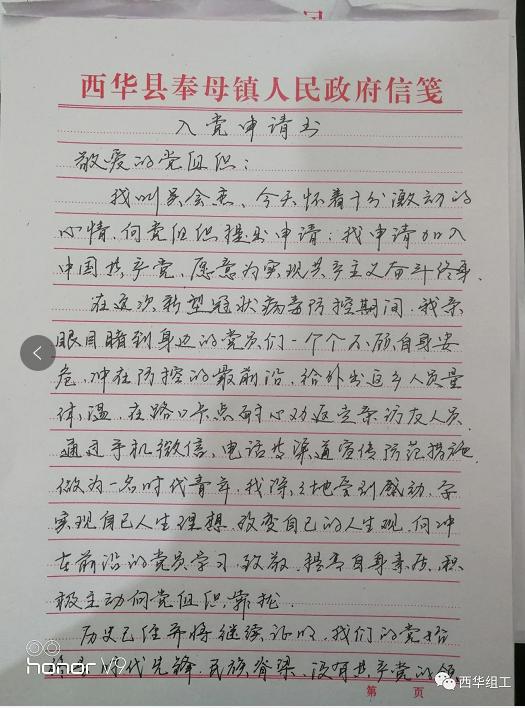 西华县奉母镇人民政府信笺
入党申请书
敬爱的党组织：
我叫吴会杰、今天怀着十分激动的
心情,向党组织提出申请：我申请加入
中国共产党,愿意为实现共产主义奋斗终身.
在这次新型冠状病毒防控期间,我亲
眼目睹到身边的党员们一个个不顾自身安
危,冲在防控的最前沿,给外出返乡人员量
体温,在路口卡点耐心劝返走亲访友人员
通过手机微信、电话等渠道宣传防范措施.
做为一名时代青年,我深深地受到感动,要
实现自己人生理想,改变自己的人生观,向冲
在前沿的党员学习,致敬,提高自身素质,积
极主动向党组织靠拢.
历史已经并将继续证明,我们的党
时代先锋,民族脊梁,没有共产党的领
第 页
honor V9
西华组工